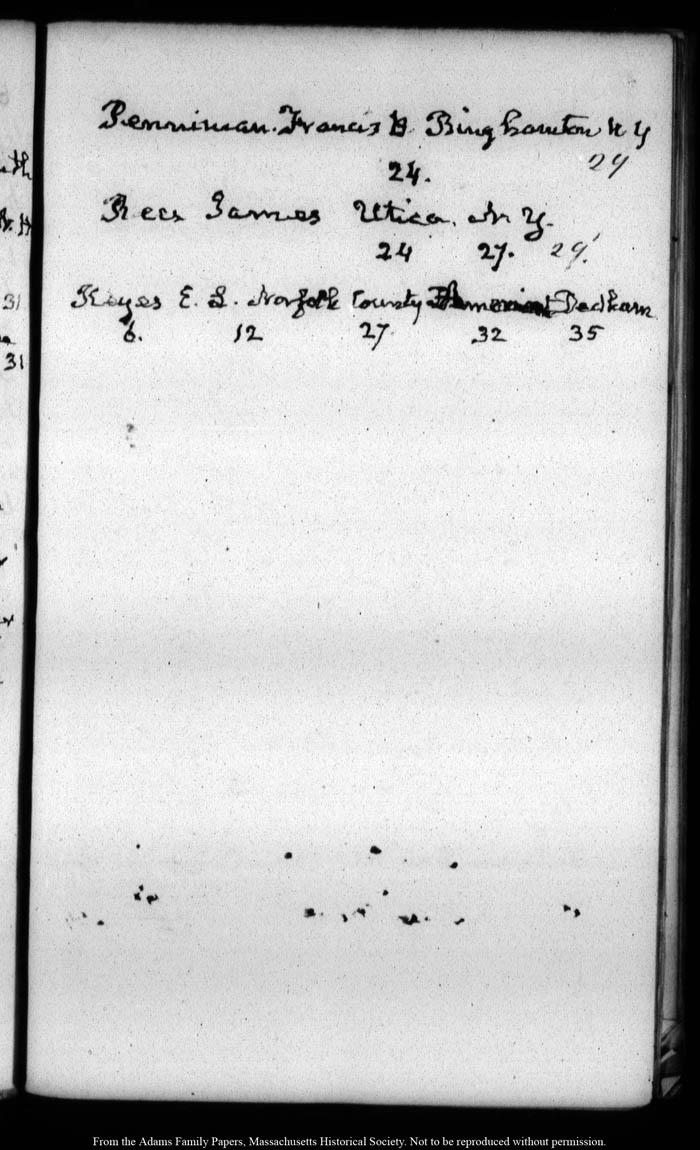 Penniman. Francis B. Binghamton N Y
24. 29
Rees James Utica. N. Y.
24 27. 29.
Keyes E. L. Norfolk County Democrat Dedham
6. 12 27 32 35
31
31
From the Adams Family Papers, Massachusetts Historical Society. Not to be reproduced without permission.